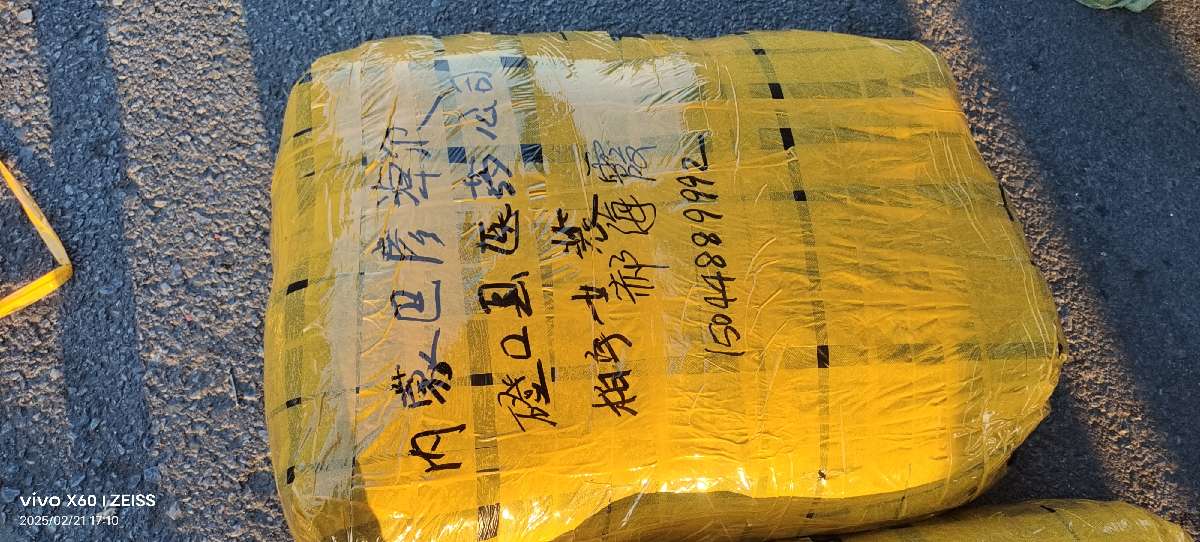 内蒙巴彦淖尔
磴口县医药公司
郝海霞
15044889992
vivo X60 | ZEISS
2025/02/21 17:10